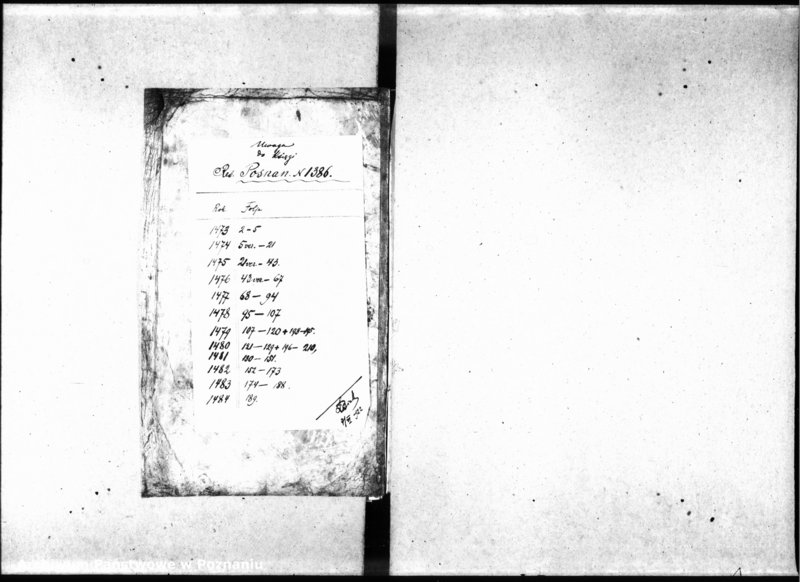 Uwaga
do Księgi
Rel. Posnan. N 1386.
Rok Folja
1473 2 – 5
1474 5 ver. – 21
1475 21 ver – 43.
1476 43 ver – 67
1477 68 – 94
1478 95 – 107
1479 107 – 120 +
1480 121 – 129 + 196 – 210,
1481 130 – 151.
1482 152 – 173
1483 174 – 188.
1484 189.
Państwowe w Poznaniu